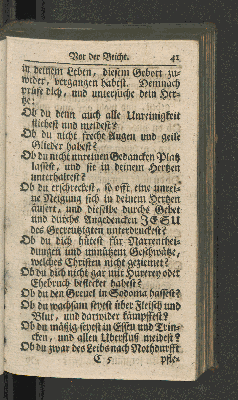 Vor der Beicht. 41
in deinem Leben, diesem Gebott zu-
wider, vergangen habest. Demnach
prüfe dich, und untersuche dein Her-
tze:
Ob du denn auch alle Unreinigkeit
fliehest und meidest?
Ob du nicht freche Augen und geile
Glieder habest?
Ob du nicht unreinen Gedancken Platz
lassest, und sie in deinem Hertzen
unterhaltest?
Ob du erschreckest, so offt eine unrei-
ne Neigung sich in deinem Hertzen
äusert, und dieselbe durchs Gebet
und durchs Angedencken JESU
des Gecreutzigten unterdruckest?
Ob du dich hütest für Narrenthei-
dungen und unnützem Geschwätze,
welches Christen nicht geziemet?
Ob du dich nicht gar mit Hurerey oder
Ehebruch beflecket habest?
Ob du den Greuel in Sodoma hassest?
Ob du wachsam seyest über Fleisch und
Blut, und darwider kämpffest?
Ob du mäßig seyest in Essen und Trin-
cken, und allen Uberfluß meidest?
Ob du zwar des Leibs nach Nothdurfft
C 5 pfle-